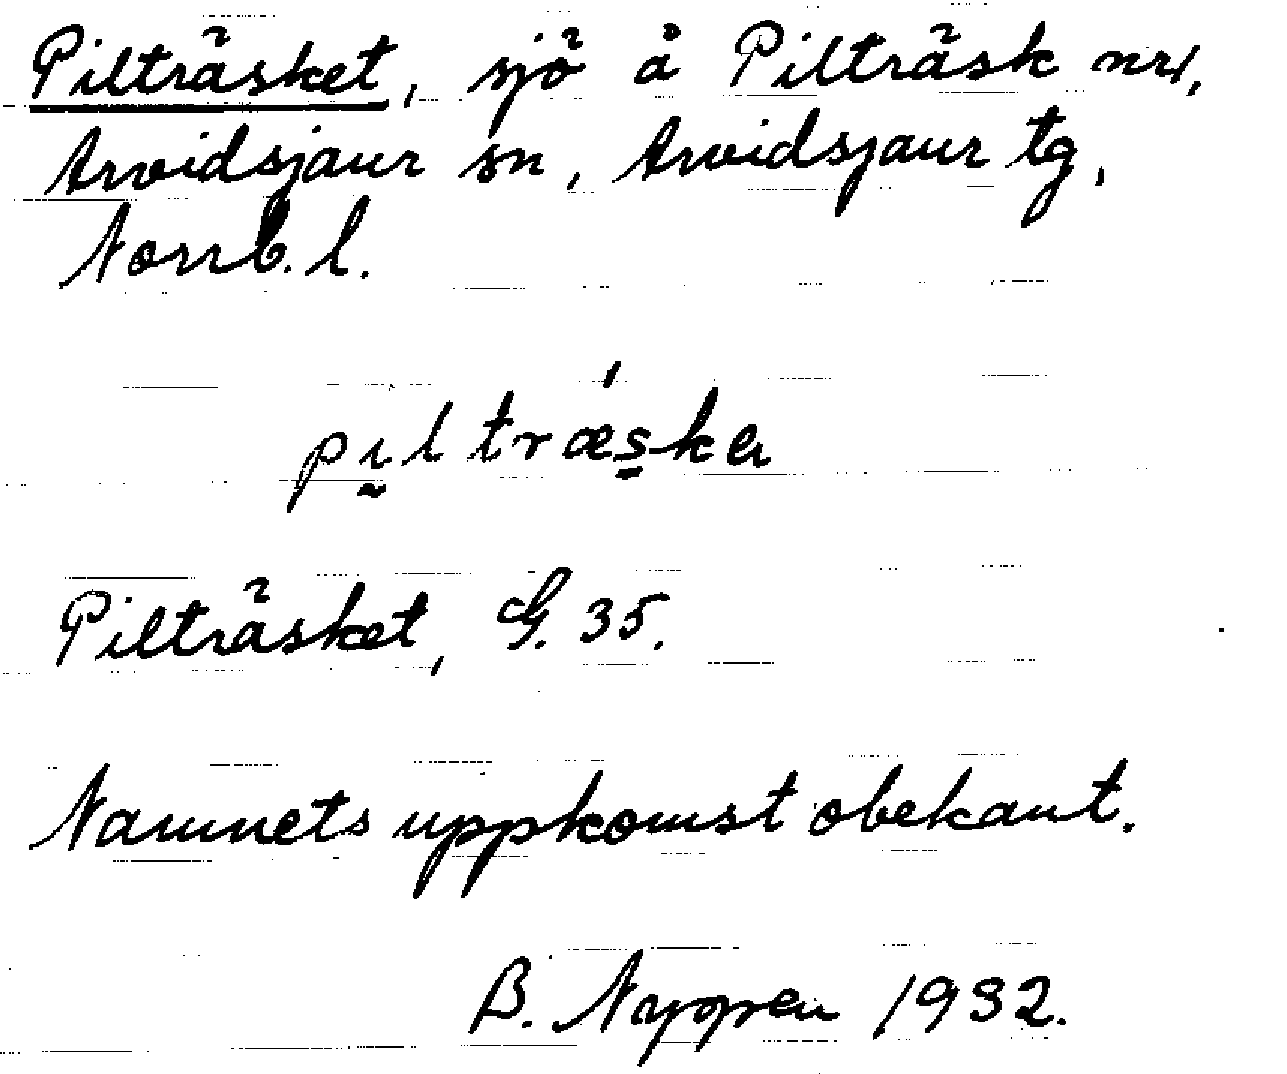 Pilträsket, sjö å Pilträsk nr 1,
Arvidsjaur sn, Arvidsjaur tg,
Norrb. l.
Pilträsket, G. 35.
Namnets uppkomst obekant.
B. Nygren 1932.